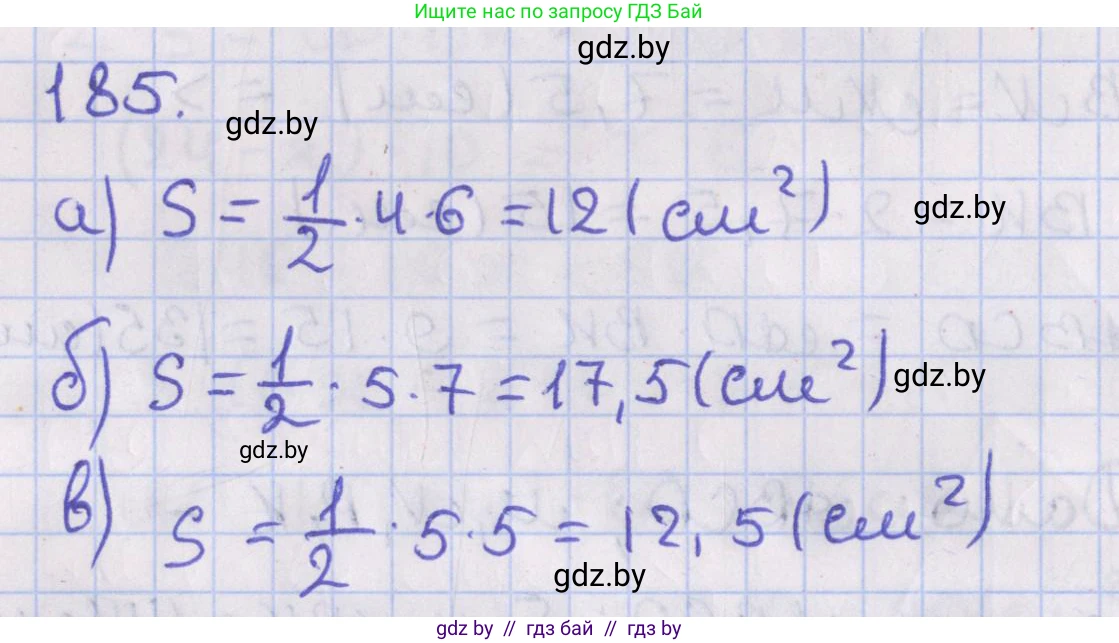 Ищите нас по запросу ГДЗ Бай
gdz.by
185.
gdz.by
а) S = 1/2 · 4 · 6 = 12 (см²)
gdz.by
б) S = 1/2 · 5 · 7 = 17,5 (см²)
gdz.by
gdz.by
в) S = 1/2 · 5 · 5 = 12,5 (см²)
gdz.by
gdz by // гдз бай // gdz by